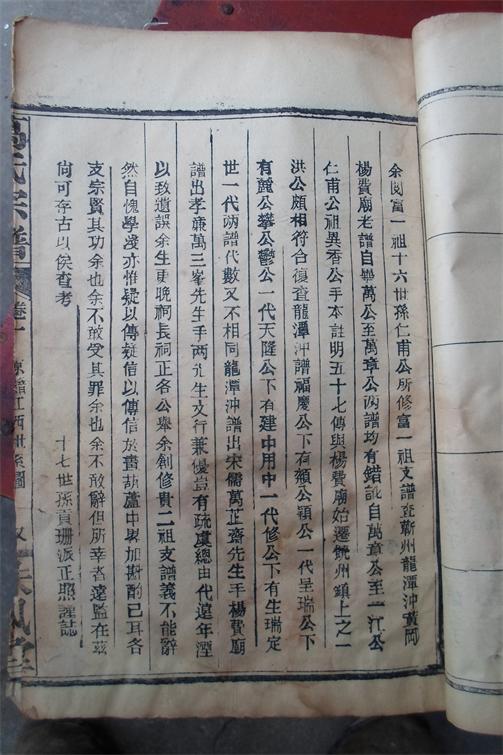 余閱富一祖十六世孫仁甫公所修富一祖支譜查蘄州龍潭沖黃岡
楊費廟老譜自畢萬公至萬章公两譜均有錯訛自萬章公至一江公
仁甫公祖異香公手本註明五十七傳與楊費廟始遷饒州鎮上之一
洪公頗相符合復查龍潭沖譜福慶公下有頴公頴公一代呈瑞公下
有麓公攀公鬱公一代天隆公下有建中用中一代修公下有生瑞定
世一代两譜代數又不相同龍潭沖譜出宋儒萬正齋先生手楊費廟
譜出孝亷萬三峯先生手两先生文行兼優豈有疏虞總由代遠年湮
以致遺誤余生更晚祠長祠正各公舉余創修貴二祖支譜義不能辭
然自愧學淺亦惟疑以傳疑信以傳信於舊葫蘆中畧加斟酌已耳各
支宗賢其功余也余不敢受其罪余也余不敢辭但所幸者遠監在兹
尙可存古以俟查考
十七世孫貢珊派正照謹誌
萬氏宗譜
卷一
原籍江西世系圖